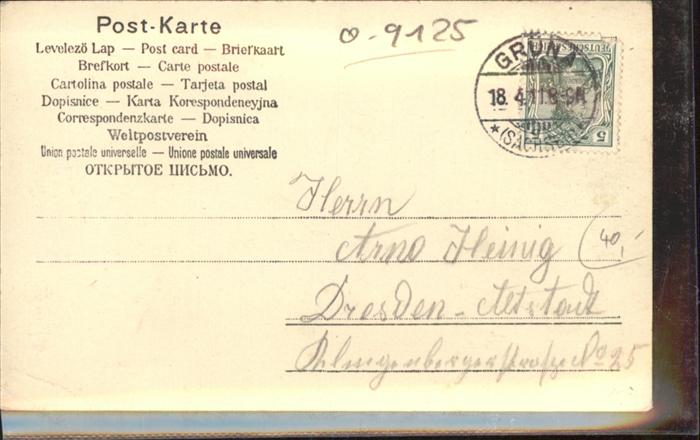 Post-Karte
Levelezö Lap — Post card — Briefkaart
Brefkort — Carte postale
Cartolina postale — Tarjeta postal
Dopisnice — Karta Korespondencyjna
Correspondenzkarte — Dopisnica
Weltpostverein
Union postale universelle — Unione postale universale
ОТКРЫТОЕ ПИСЬМО.
0-9125
GRÜNA
18. 4. 11. 8-9N.
* (SACHSEN)
DEUTSCHES REICH
5
Herrn
Arno Heinig
40,-
Dresden-Altstadt
Klingenbergerstraße No 25